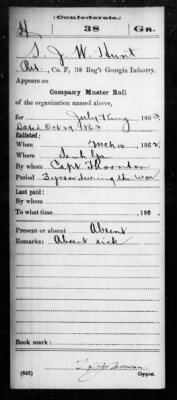 (Confederate.)
H 38 Ga.
S. J. W. Hunt
Pvt., Co. F, 38 Reg't Georgia Infantry.
Appears on
Company Muster Roll
of the organization named above,
for July & Aug, 1863.
Dated Oct 29, 1863
Enlisted:
When Mch 10, 1862.
Where Ga
By whom Capt. Thornton
Period 3 yrs or during the war
Last paid:
By whom
To what time , 186 .
Present or absent Absent
Remarks: Absent sick
Book mark:
(642) Copyist.